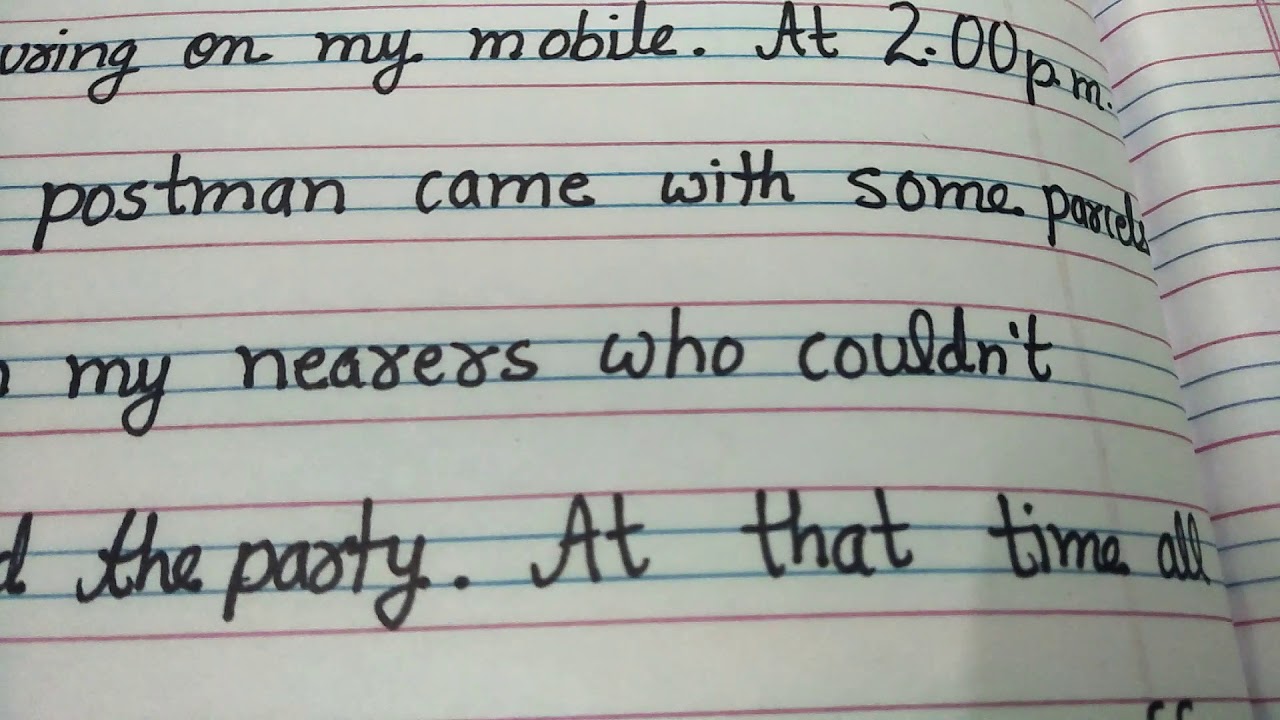 on my mobile. At 2.00 p.m.
postman came with some parcels
my nearers who couldn't
the party. At that time all